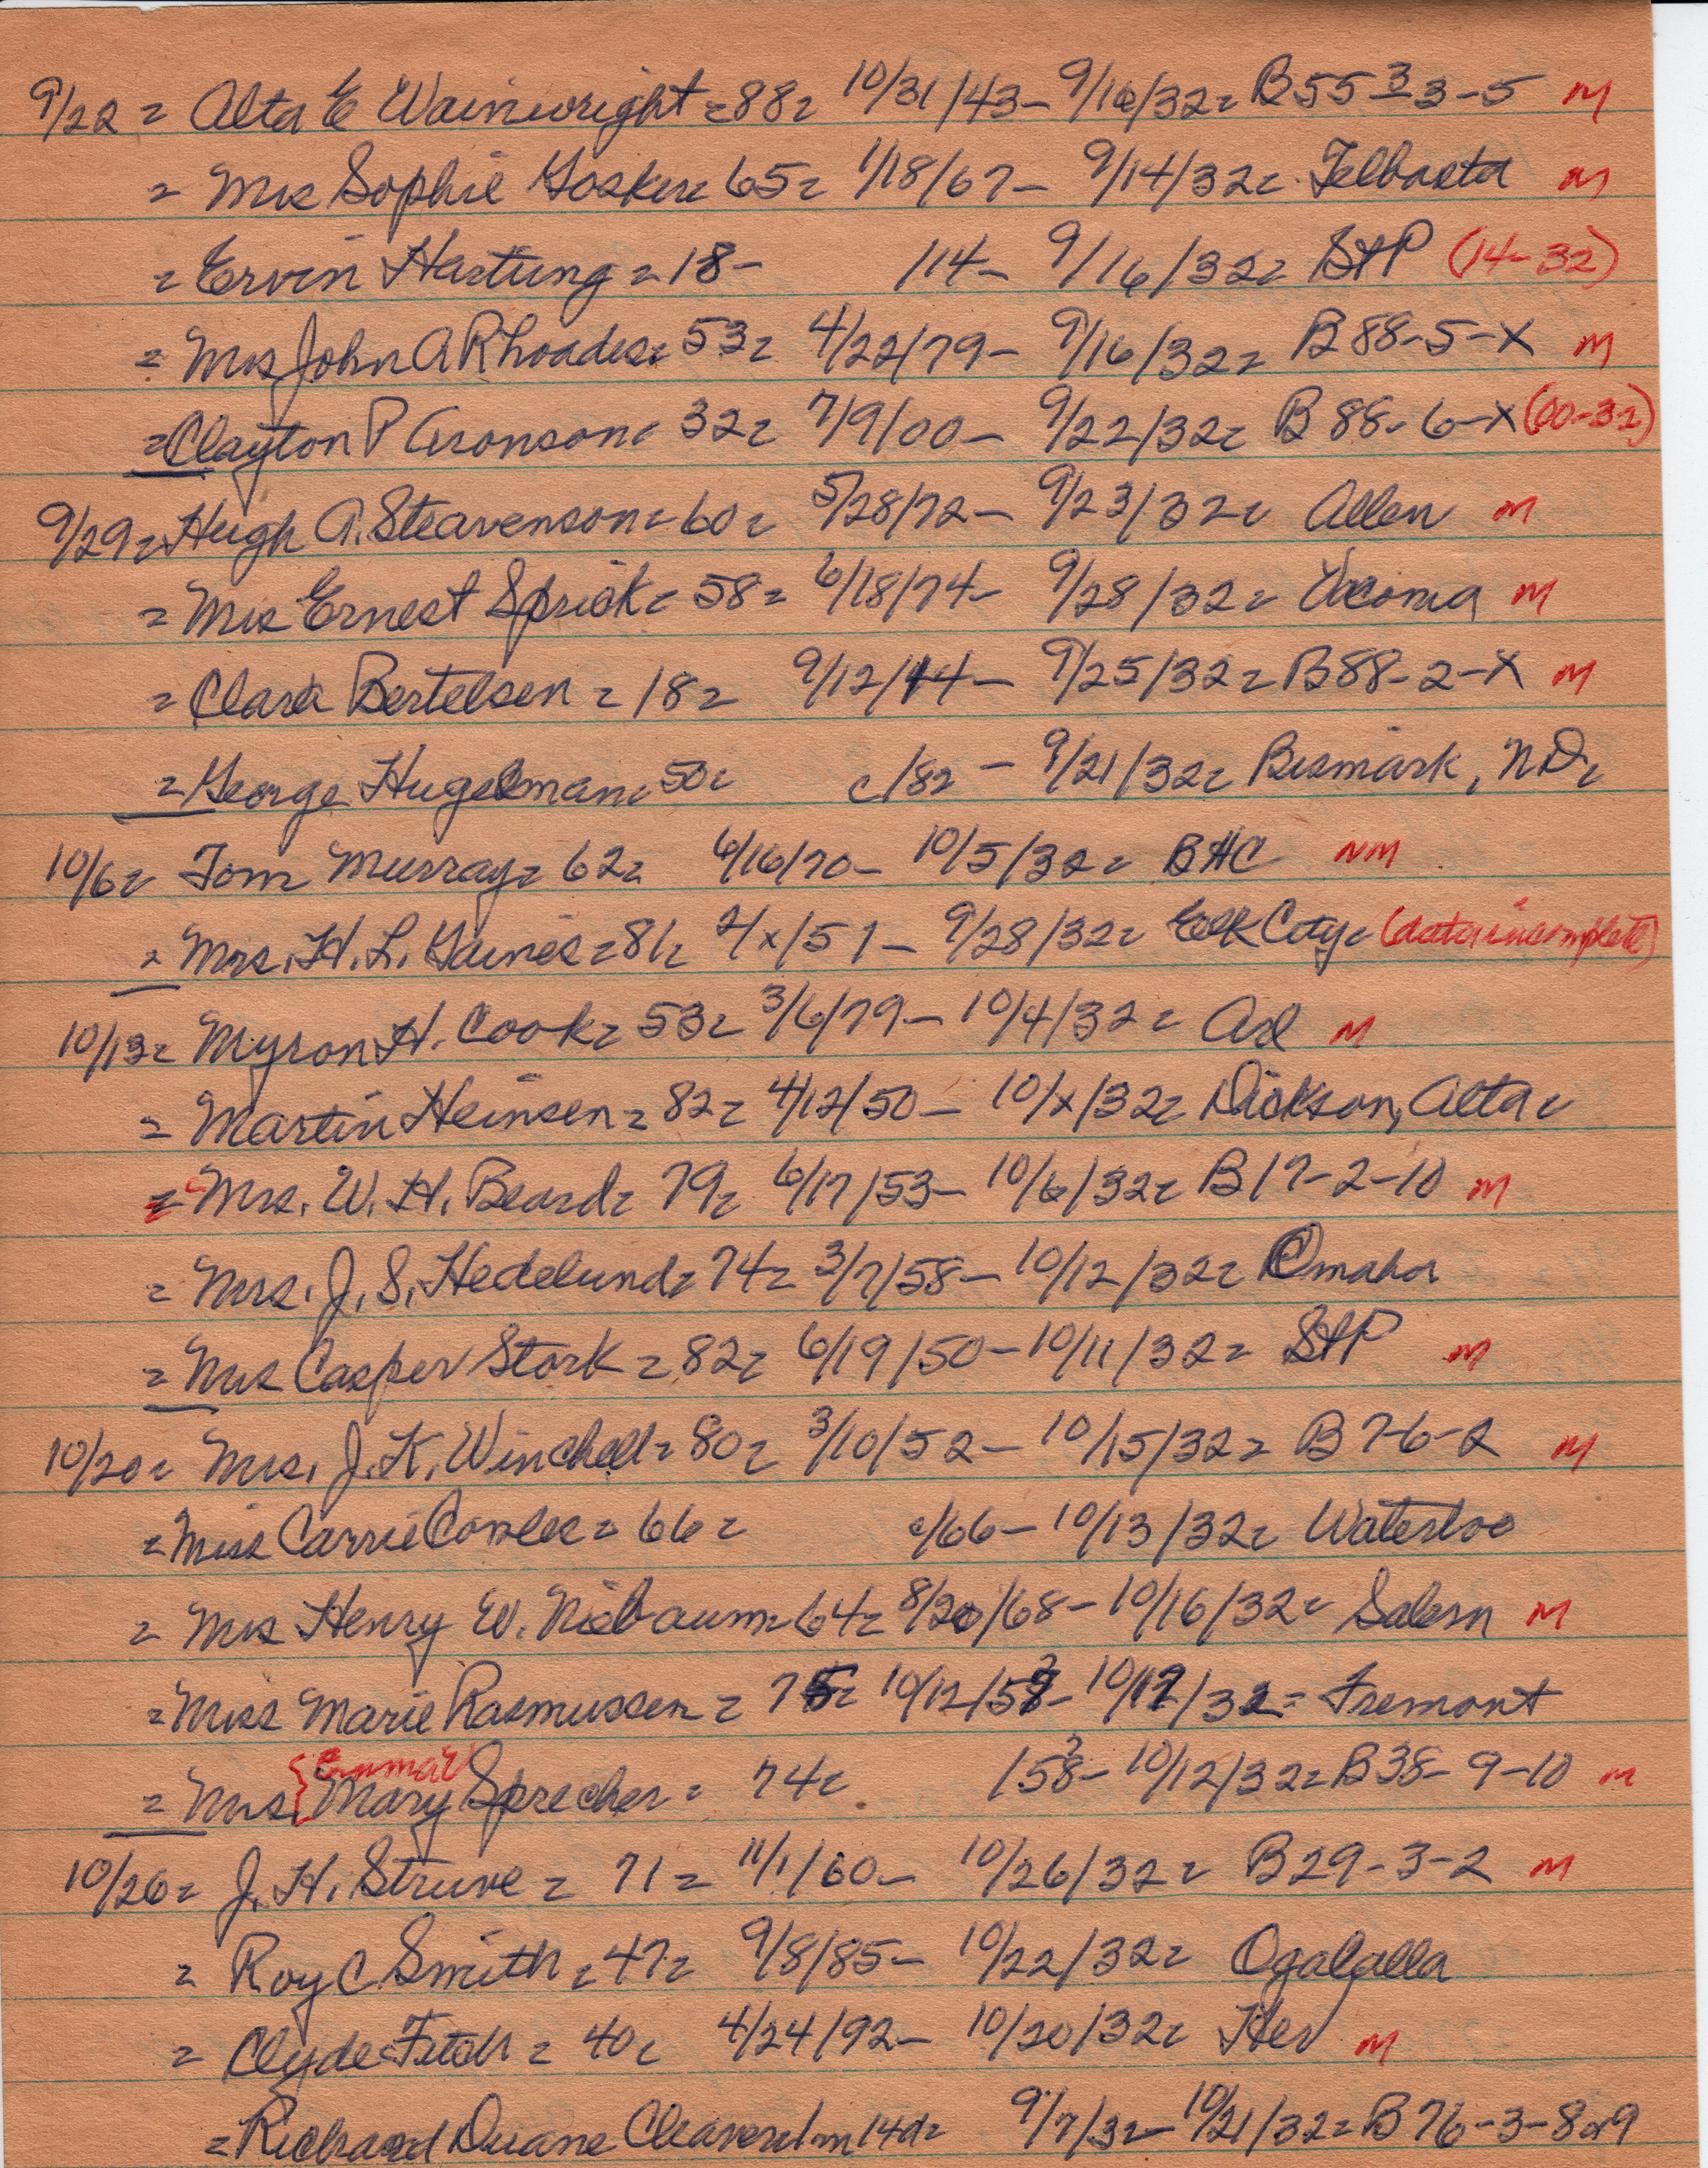 9/22 = Alta E Wainwright = 88 = 10/31/43 - 9/10/32 = B 55 - 3 3 - 5 M
= Mrs Sophie Gosker = 65 = 1/18/67 - 9/14/32 = Telbasta M
= Ervin Hartung = 18 - /14 - 9/16/32 = BHP (14-32)
= Mrs John A Rhoades = 53 = 4/22/79 - 9/16/32 = B 88-5-X M
= Clayton P Aronson = 32 = 7/9/00 - 9/22/32 = B 88-6-X (00-32)
9/29 = Hugh A. Steavenson = 60 = 5/28/72 - 9/23/32 = Allen M
= Mrs Ernest Sprick = 58 = 6/18/74 - 9/28/32 = M
= Clara Bertelsen = 18 = 9/12/14 - 9/25/32 = B 88-2-X M
= George Hugelman = 50 = c/82 - 9/21/32 = Bismark, N.D.
10/6 = Tom Murray = 62 = 6/16/70 - 10/5/32 = BHC NM
= Mrs. H. L. Gaines = 81 = 2/x/51 - 9/28/32 = Elk City = (data incomplete)
10/13 = Myron H. Cook = 53 = 3/6/79 - 10/4/32 = Arl M
= Martin Heinsen = 82 = 4/12/50 - 10/x/32 = Dickson, Alta =
= Mrs. W. H. Beard = 79 = 6/17/53 - 10/6/32 = B 17-2-10 M
= Mrs. J. S. Hedelund = 74 = 3/7/58 - 10/12/32 = Omaha
= Mrs Casper Stork = 82 = 6/19/50 - 10/11/32 = BHP M
10/20 = Mrs. J. K. Winchell = 80 = 3/10/52 - 10/15/32 = B 7-6-2 M
= Miss Carrie = 66 = c/66 - 10/13/32 = Waterloo
= Mrs Henry W. Niebaum = 64 = 8/20/68 - 10/16/32 = Salem M
= Miss Marie Rasmussen = 75 = 10/12/57 - 10/12/32 = Fremont
= Mrs. {Emma? Mary Sprecher = 74 = /58? - 10/12/32 = B 38-9-10 M
10/26 = J. H. Struve = 71 = 11/1/60 - 10/26/32 = B 29-3-2 M
= Roy C Smith = 47 = 9/8/85 - 10/22/32 = Ogalalla
= Clyde Fitch = 40 = 4/24/92 - 10/20/32 = Her M
= Richard Duane Cleaver 1m 14d = 9/7/32 - 10/21/32 = B 76-3-8 or 9